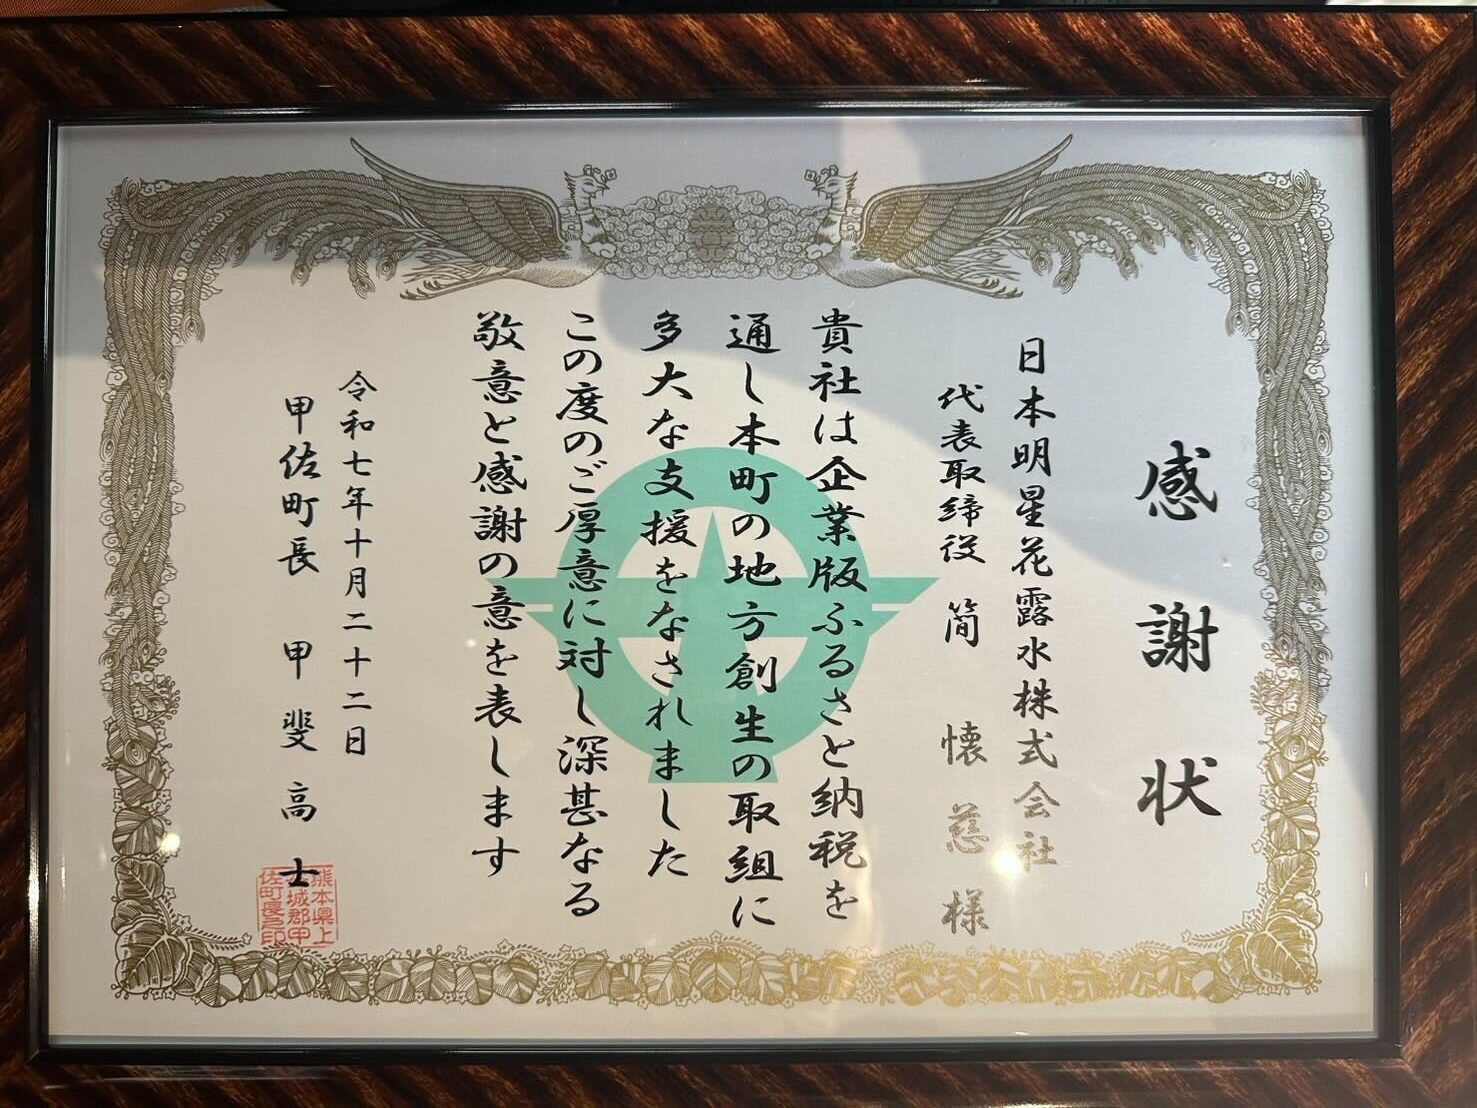 感謝状
日本明星花露水株式会社
代表取締役 简 懐慈 様
貴社は企業版ふるさと納税を
通し本町の地方創生の取組に
多大な支援をなされました
この度のご厚意に対し深甚なる
敬意と感謝の意を表します
令和七年十月二十二日
甲佐町長 甲斐高士
熊本県上
益城郡甲
佐町長之印